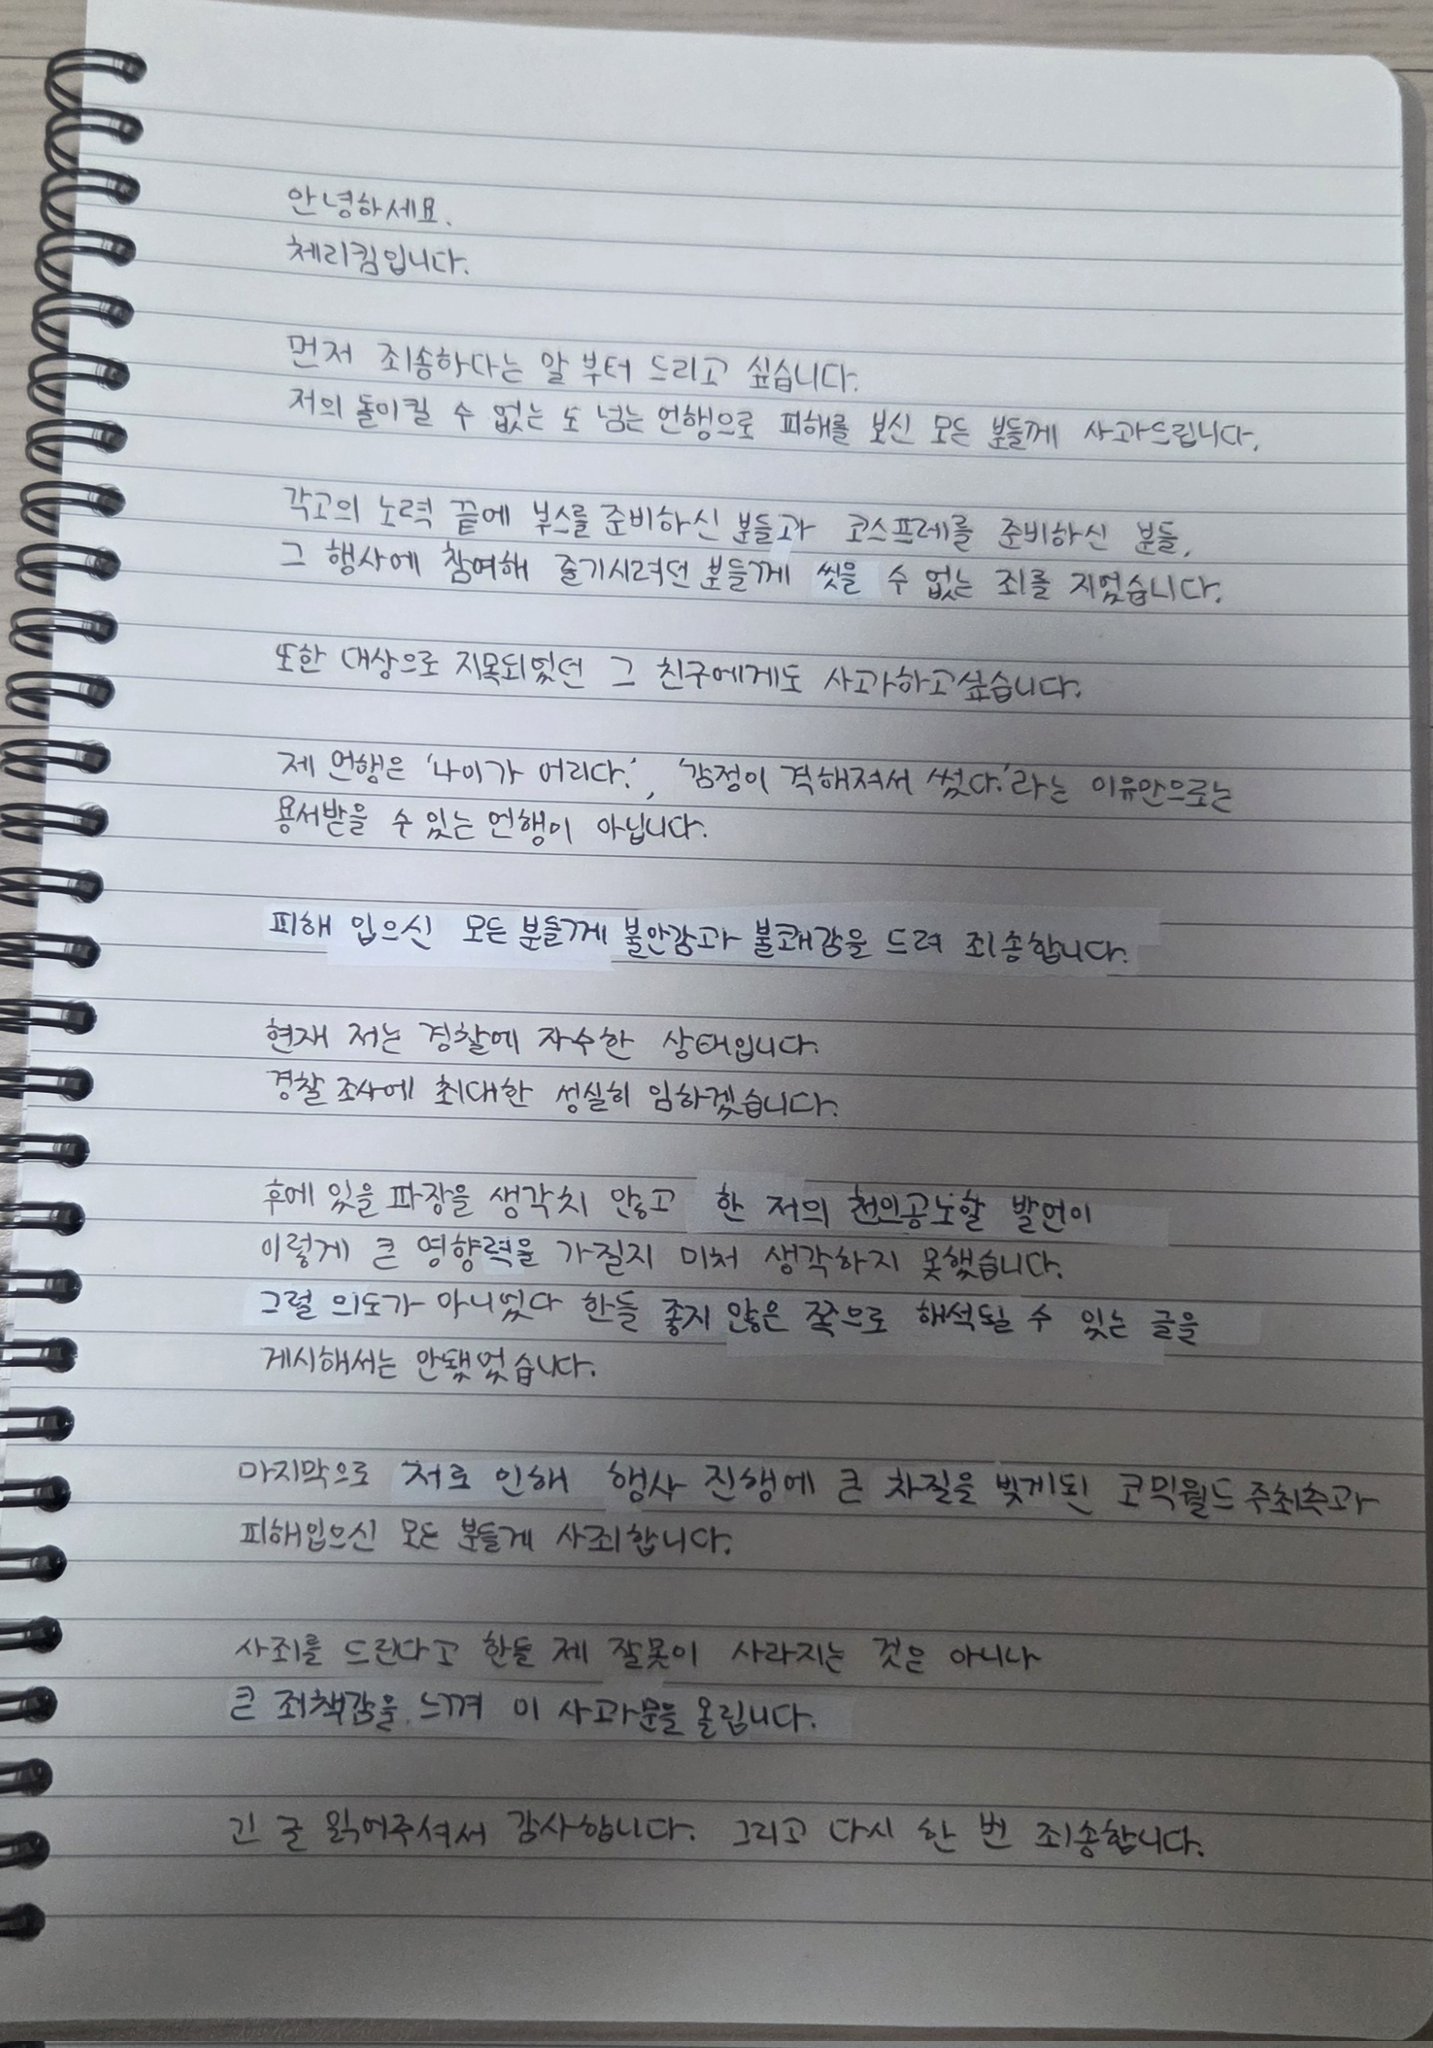 안녕하세요.
체리킴입니다.
먼저 죄송하다는 말 부터 드리고 싶습니다.
저의 돌이킬 수 없는 도 넘는 언행으로 피해를 보신 모든 분들께 사과드립니다.
각고의 노력 끝에 부스를 준비하신 분들과 코스프레를 준비하신 분들,
그 행사에 참여해 즐기시려던 분들께 씻을 수 없는 죄를 지었습니다.
또한 대상으로 지목되었던 그 친구에게도 사과하고싶습니다.
제 언행은 '나이가 어리다.', '감정이 격해져서 썼다.'라는 이유만으로는
용서받을 수 있는 언행이 아닙니다.
피해 입으신 모든 분들께 불안감과 불쾌감을 드려 죄송합니다.
현재 저는 경찰에 자수한 상태입니다.
경찰 조사에 최대한 성실히 임하겠습니다.
후에 있을 파장을 생각치 않고 한 저의 천인공노할 발언이
이렇게 큰 영향력을 가질지 미처 생각하지 못했습니다.
그럴 의도가 아니었다 한들 좋지 않은 쪽으로 해석될 수 있는 글을
게시해서는 안됐었습니다.
마지막으로 저로 인해 행사 진행에 큰 차질을 빚게된 코믹월드 주최측과
피해입으신 모든 분들께 사죄합니다.
사죄를 드린다고 한들 제 잘못이 사라지는 것은 아니나
큰 죄책감을 느껴 이 사과문을 올립니다.
긴 글 읽어주셔서 감사합니다. 그리고 다시 한 번 죄송합니다.